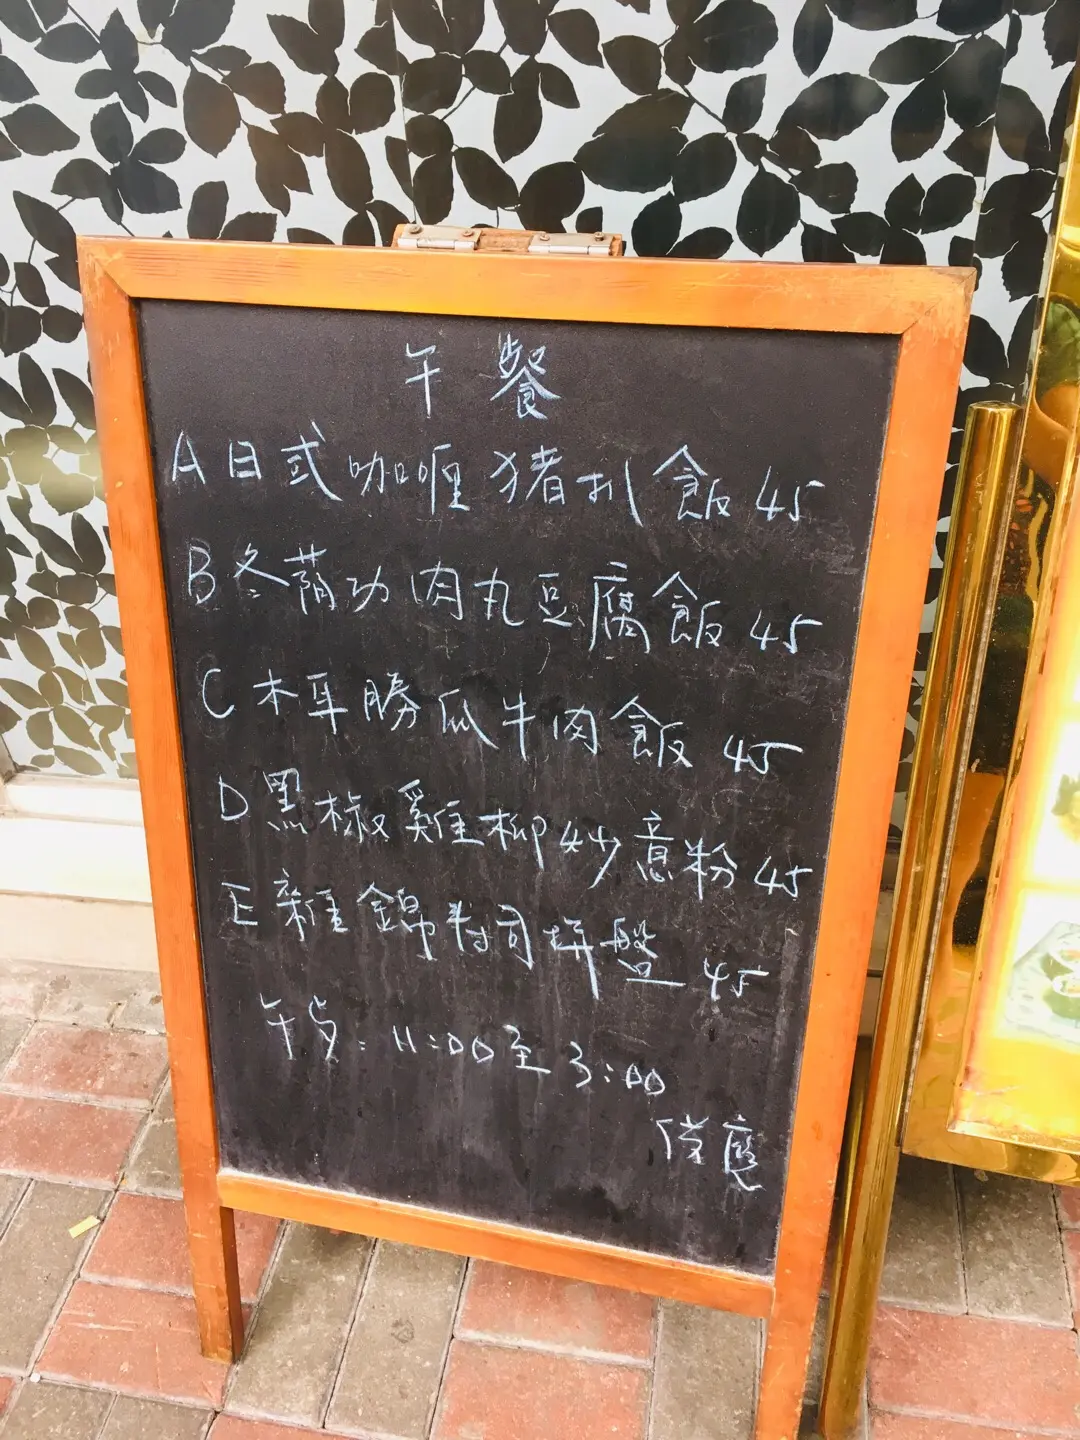 午餐
A 日式咖喱猪扒飯 45
B 冬蔭功肉丸豆腐飯 45
C 木耳勝瓜牛肉飯 45
D 黑椒雞柳炒意粉 45
E 雜錦寿司拼盤 45
午市: 11:00至3:00
供應